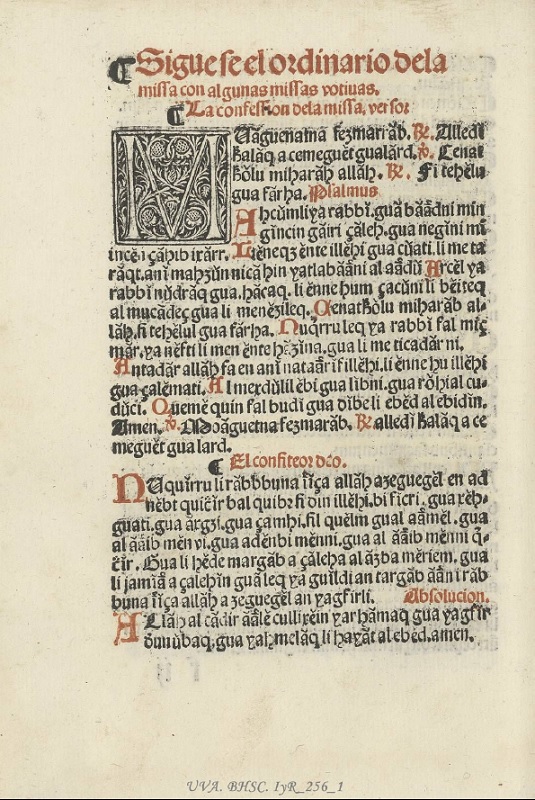 ¶ Siguese el ordinario dela
missa con algunas missas votiuas.
¶ La confession dela missa, versor
MUaguenatna fezmarrab. ℟. Alledi
kalaq a cemeguet gualard. ℣. Cenat
kolu miharah allah. ℟. Fi tehelu
gua farha. Psalmus
Ahcumliya rabbi. gua baadni min
gincin gairi çaleh. gua negini mi
ince. i çahib ixarr. Lieneqz ente illehi gua cuati. li me ta
raqt. ani mahzun nica hin yatlabaani al aadu Arcel ya
rabbi nudraq gua. haçaq. li enne hum çacuni li beiteq
al mucadeç gua li menezileq. Cenat kolu miharab al-
lah. fi tehelul gua farha. Nuqrru leq ya rabbi fal miç
mar. ya nefti li men ente hazina. gua li me ticadar ni.
Antadar allah fa en ani nataarif illehi. li enne hu illehi
gua çalemati. Al mexdulil ebi gua libni. gua rohial cu-
duci. Quemē quin fal budi gua dibe li ebed al ebidin.
Amen. ℣. Moaguetna fezmarab. ℟. alledi kalaq a ce
meguet gua lard.
¶ El confiteor deo.
NUquirru li rabbbuna iça allah azeguegel en ad
nebt quieir bal quibr fi din illehi. bi ficri. gua xeh-
guati. gua argzi. gua çamhi. fil quelm gual aamel. gua
al aaib men vi. gua adenbi menni. gua al aaib menni q̄-
eir. Gua li hede margab a çaleha al azba meriem. gua
li jamia a çalehin gua leq ya guildi an targab aani rab
buna iça allah a zeguegel an yagfirli. Absolucion.
Allah al cadir aale culli xein yarhamaq gua yagfir
dunubaq, gua yahmelaq li hayat al ebed. amen.
UVA. BHSC. IyR_256_1